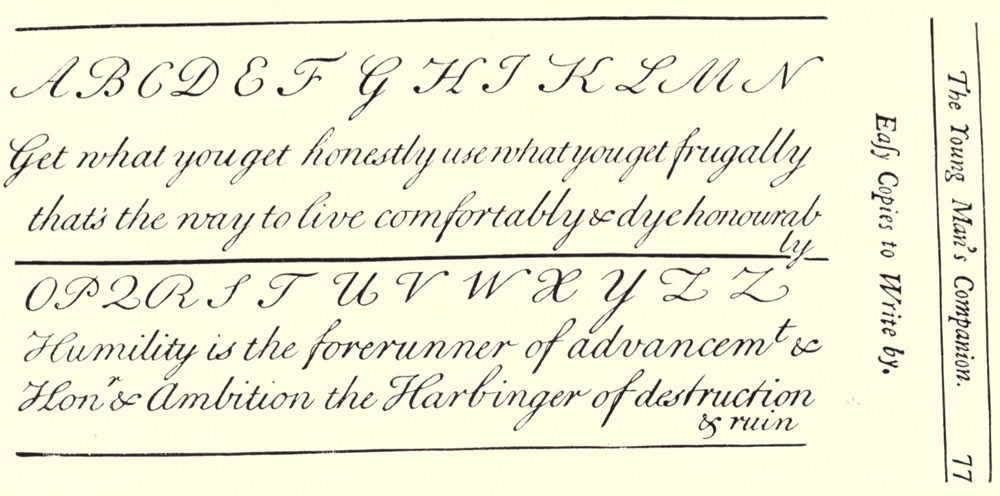 The Young Man's Companion. 77
Eaſy Copies to Write by.
A B C D E F G H I K L M N
Get what you get honestly use what you get frugally
that's the way to live comfortably & dye honourab
ly
O P Q R S T U V W X Y Z Z
Humility is the forerunner of advancemt &
Honr & Ambition the Harbinger of destruction
& ruin